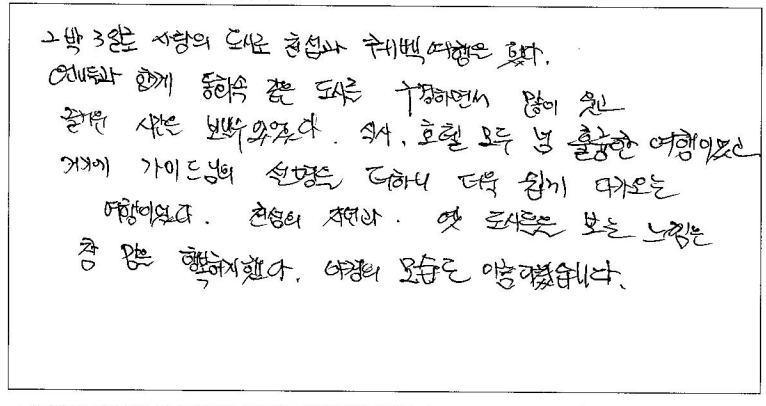 2박 3일로 사랑의 도시로 천섬과 퀘백 여행을 했다.
언니들과 함께 동화속 같은 도시를 구경하면서 많이 웃고
즐거운 시간을 보낼수 있었다. 식사, 호텔 모두 넘 훌륭한 여행이었고
거기에 가이드님의 설명을 더하니 더욱 쉽게 다가오는
여행이었다. 천섬의 자연과. 옛 도시들을 보는 느낌은
참 맘을 행복하게했다. 야경의 모습도 아름다웠습니다.